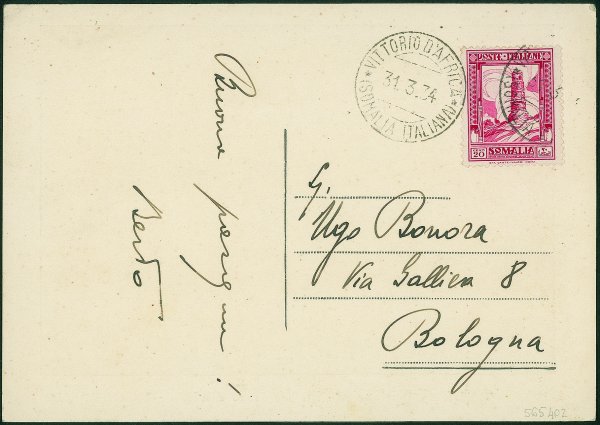 Buona pasqua!
Berto
VITTORIO D'AFRICA
31.3.34
(SOMALIA ITALIANA)
POSTE ITALIANE
SOMALIA
20
Ugo Bonora
Via Galliera 8
Bologna
565402